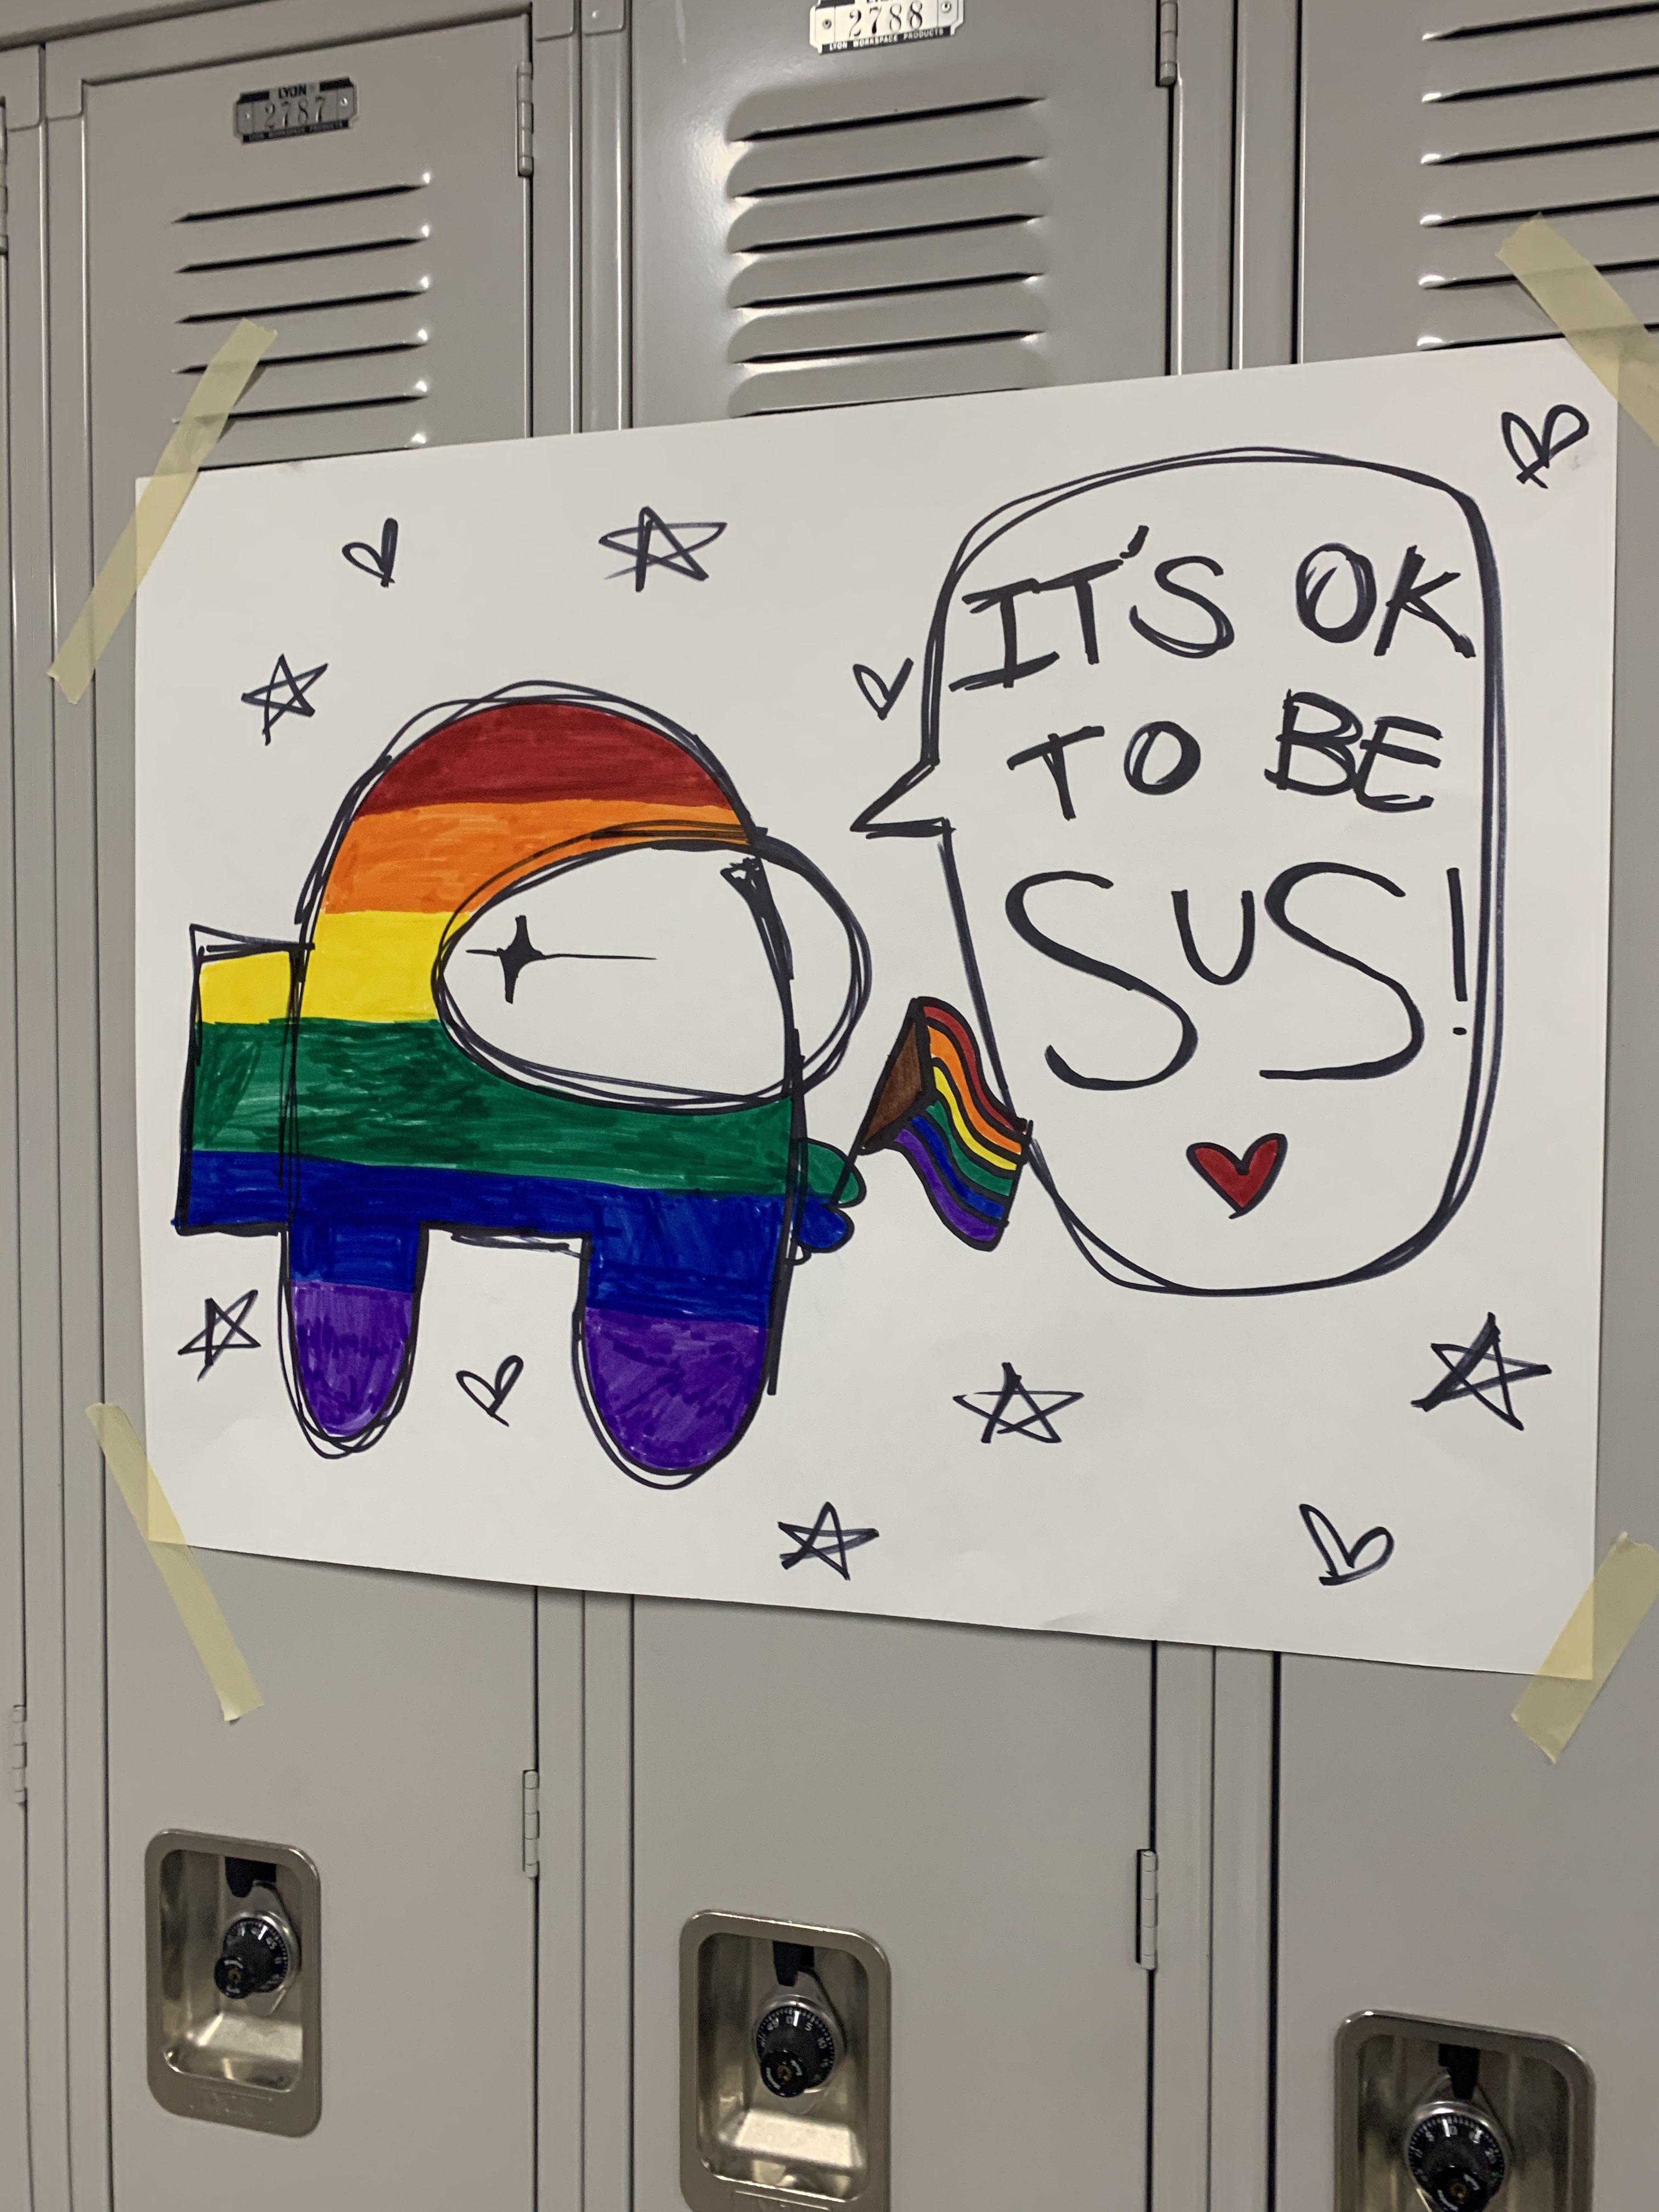 LYON
2788
LYON WORKSPACE PRODUCTS
2787
LYON WORKSPACE PRODUCTS
IT'S OK
TO BE
SUS!